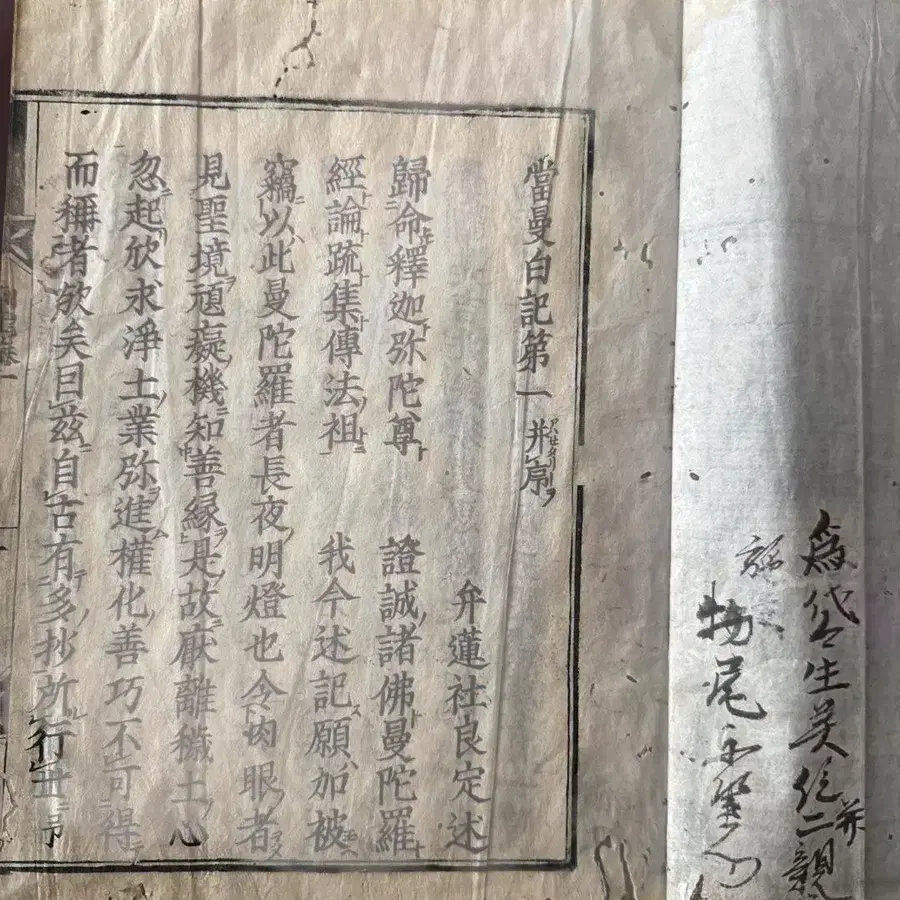 為代々生 二親
并
施
當曼白記第一 并序
弁蓮社良定述
歸命釋迦弥陀尊 證誠諸佛曼陀羅
經論疏集傳法祖 我今述記願加被
竊以此曼陀羅者長夜明燈也令肉眼者
見聖境頑癡機知善縁是故厭離穢土心
忽起欣求淨土業弥進權化善巧不可得
而稱者欤矣因茲自古有多抄所行世